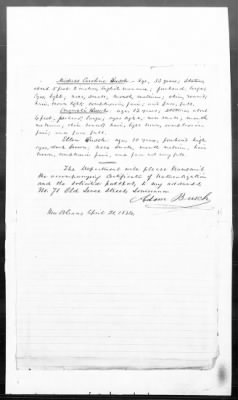 Madame Caroline Busch - Age, 33 years; Stature
about 5 feet 2 inches, English measure; forehead large;
eyes, light; nose, small; mouth, medium; chin, round;
hair, brown light; complexion fair; and face, full.
Busch: age, 12 years, stature about
4 feet, forehead large; eyes light; nose small; mouth
medium; chin round; hair, light brown; complexion
fair; and face full.
Ellen Busch: age 10 years, forehead high
eyes, dark brown; nose small; mouth medium; hair
brown, complexion fair, and face oval
The Department will please transmit
the accompanying Certificate of Naturalization
and the solicited passport, to my address,
No. 71 Old Levee Street, Louisiana
Adam Busch
New Orleans April 21, 18